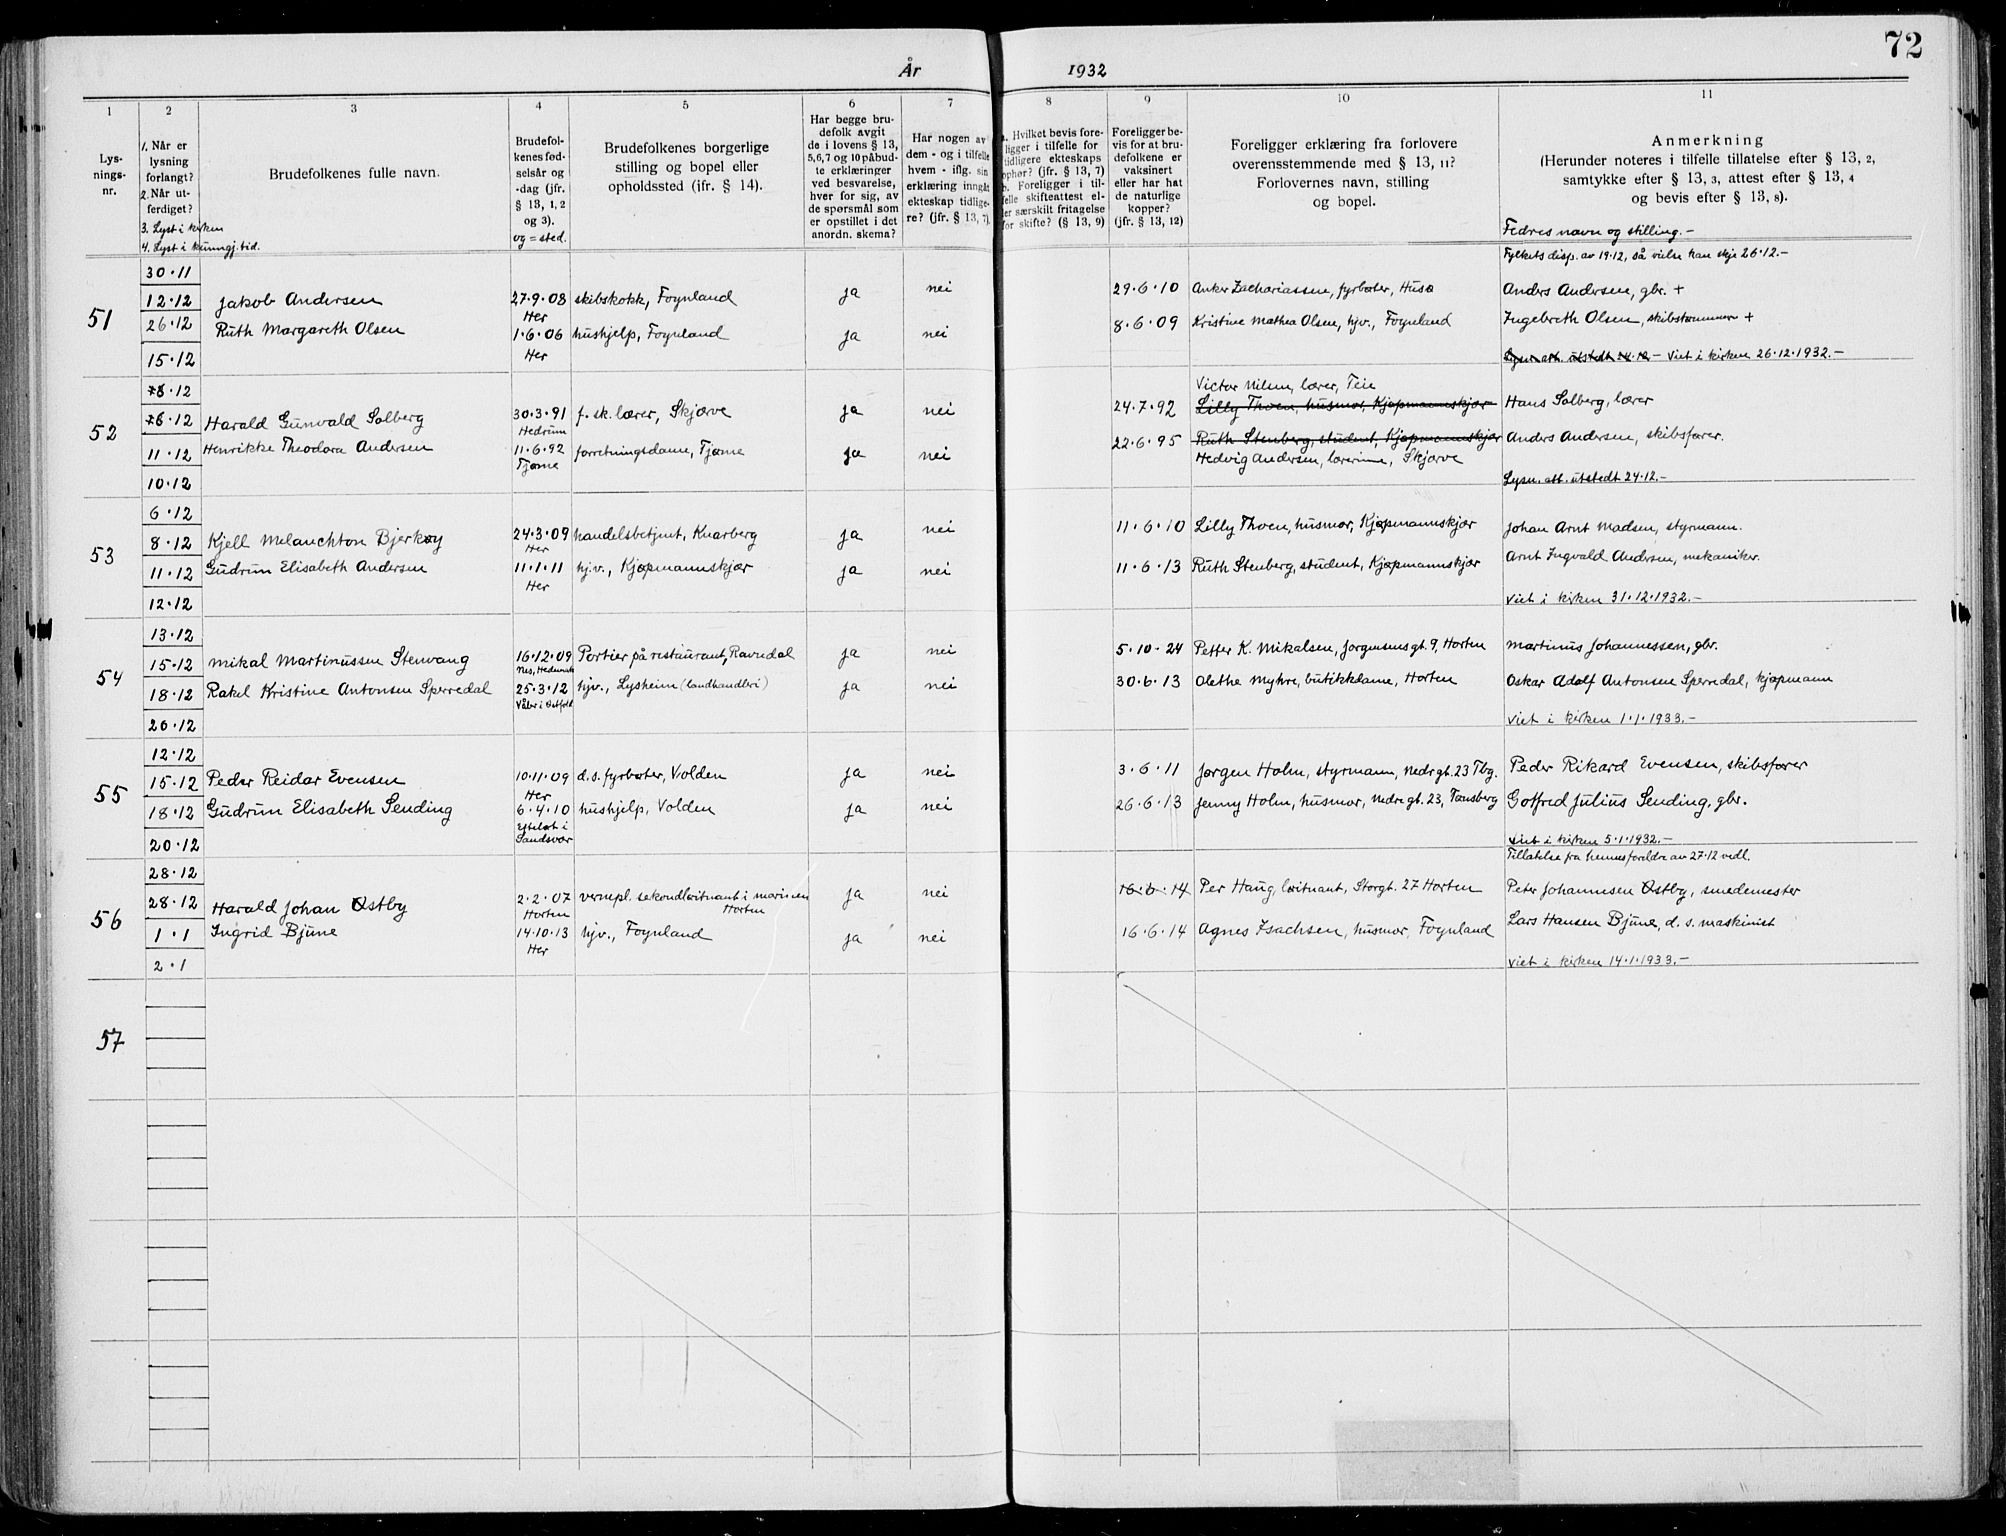 72
År 1932
1 2 3 4 5 6 7 8 9 10 11
Lys-
nings-
nr.
1. Når er
lysning
forlangt?
2. Når ut-
ferdiget?
3. Lyst i kirken
4. Lyst i kunngj.tid.
Brudefolkenes fulle navn.
Brudefol-
kenes fød-
selsår og
-dag (jfr.
§ 13, 1, 2
og 3).
og = sted.
Brudefolkenes borgerlige
stilling og bopel eller
opholdssted (jfr. § 14).
Har begge bru-
defolk avgit
de i lovens § 13,
5, 6, 7 og 10 påbud-
te erklæringer
ved besvarelse,
hver for sig, av
de spørsmål som
er opstillet i det
anordn. skema?
Har nogen av
dem - og i tilfelle
hvem - iflg. sin
erklæring inngåt
ekteskap tidlige-
re? (jfr. § 13, 7).
a. Hvilket bevis fore-
ligger i tilfelle for
tidligere ekteskaps
ophør? (jfr. § 13, 7)
b. Foreligger i til-
felle skifteattest el-
ler særskilt fritagelse
for skifte? (§ 13, 9)
Foreligger be-
vis for at bru-
defolkene er
vaksinert
eller har hat
de naturlige
kopper?
(jfr. § 13, 12)
Foreligger erklæring fra forlovere
overensstemmende med § 13, 11?
Forlovernes navn, stilling
og bopel.
Anmerkning
(Herunder noteres i tilfelle tillatelse efter § 13, 2,
samtykke efter § 13, 3, attest efter § 13, 4
og bevis efter § 13, 8).
Fedres navn og stilling.-
51
30.11 Fylkets disp. av 19.12, så vielse kan skje 26.12.-
12.12 Jakob Andersen 27.9.08 skibskokk, Foynland ja nei 29.6.10 Anker Zachariassen, fyrbøter, Husø Anders Andersen, gbr. +
Her
26.12 Ruth Margareth Olsen 1.6.06 hushjelp, Foynland ja nei 8.6.09 Kristine Mathea Olsen, hjv., Foynland Ingebreth Olsen, skibstømmerm +
Her
15.12 Lysn. att. utstedt 14.12.- Viet i kirken 26.12.1932.-
52
8.12 Victor Nilsen, lærer, Teie
6.12 Harald Gunvald Solberg 30.3.91 f. sk. lærer, Skjærve ja nei 24.7.92 Lilly Thoen, husmor, Kjøpmannskjær Hans Solberg, lærer
Hedrum
11.12 Henrikke Theodora Andersen 11.6.92 forretningsdame, Tjøme ja nei 22.6.95 Ruth Stenberg, student, Kjøpmannskjær Anders Andersen, skibsfører.
Tjøme Hedvig Andersen, lærerinne, Skjærve
10.12 Lysn. att. utstedt 24.12.-
53
6.12
8.12 Kjell Melanchton Bjerkøy 24.3.09 handelsbetjent, Knarberg ja nei 11.6.10 Lilly Thoen, husmor, Kjøpmannskjær Johan Arnt Madsen, styrmann.
Her
11.12 Gudrun Elisabeth Andersen 11.1.11 hjv., Kjøpmannskjær ja nei 11.6.13 Ruth Stenberg, student, Kjøpmannskjær Arnt Ingvald Andersen, mekaniker.
Her
12.12 Viet i kirken 31.12.1932.-
54
13.12
15.12 Mikal Martinussen Stenvang 16.12.09 Portier på restaurant, Ravnedal ja nei 5.10.24 Petter K. Mikalsen, Jørgensensgt. 9, Horten Martinus Johannessen, gbr.
Nes, Hedemark
18.12 Rakel Kristine Antonsen Sperredal 25.3.12 hjv., Lysheim (landhandleri) ja nei 30.6.13 Olethe Myhre, butikkdame, Horten Oskar Adolf Antonsen Sperredal, kjøpmann
Våler i Østfold
20.12 Viet i kirken 1.1.1933.-
55
12.12
15.12 Peder Reidar Evensen 10.11.09 d.s. fyrbøter, Volden ja nei 3.6.11 Jørgen Holm, styrmann, Nedregt. 23 Tbg. Peder Rikard Evensen, skibsfører
Her
18.12 Gudrun Elisabeth Sending 6.4.10 hushjelp, Volden ja nei 26.6.13 Jenny Holm, husmor, Nedre gt. 23, Tønsberg Gotfred Julius Sending, gbr.
Efteløt i
Sandsvær
20.12 Viet i kirken 5.1.1932.-
56
28.12 Tillatelse fra hennes foreldre av 27.12 vedl.
28.12 Harald Johan Østby 2.2.07 vernepl. sekondløitnant i marinen ja nei 16.6.14 Per Haug, løitnant, Storgt. 27 Horten Peter Johannsen Østby, smedemester
Horten Horten
1.1 Ingrid Bjune 14.10.13 hjv., Foynland ja nei 16.6.14 Agnes Isachsen, husmor, Foynland Lars Hansen Bjune, d.s. maskinist
Her
2.1 Viet i kirken 14.1.1933.-
57